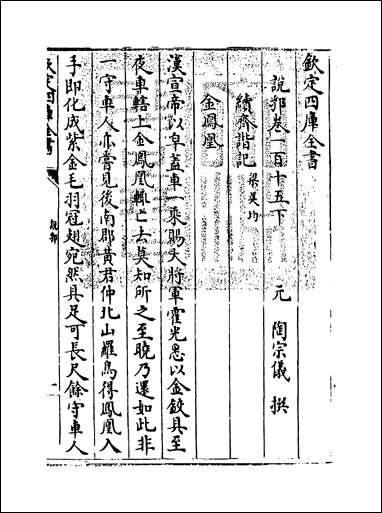 欽定四庫全書
說郛卷一百十五下
元 陶宗儀 撰
續齊諧記 梁吳均
金鳳凰
漢宣帝以皁蓋車一乘賜大將軍霍光悉以金鉸具至
夜車轄上金鳳凰輒亡去莫知所之至曉乃還如此非
一守車人亦嘗見後南郡黃君仲北山羅鳥得鳳凰入
手即化成紫金毛羽冠翅宛然具足可長尺餘守車人
欽定四庫全書
說郛
一